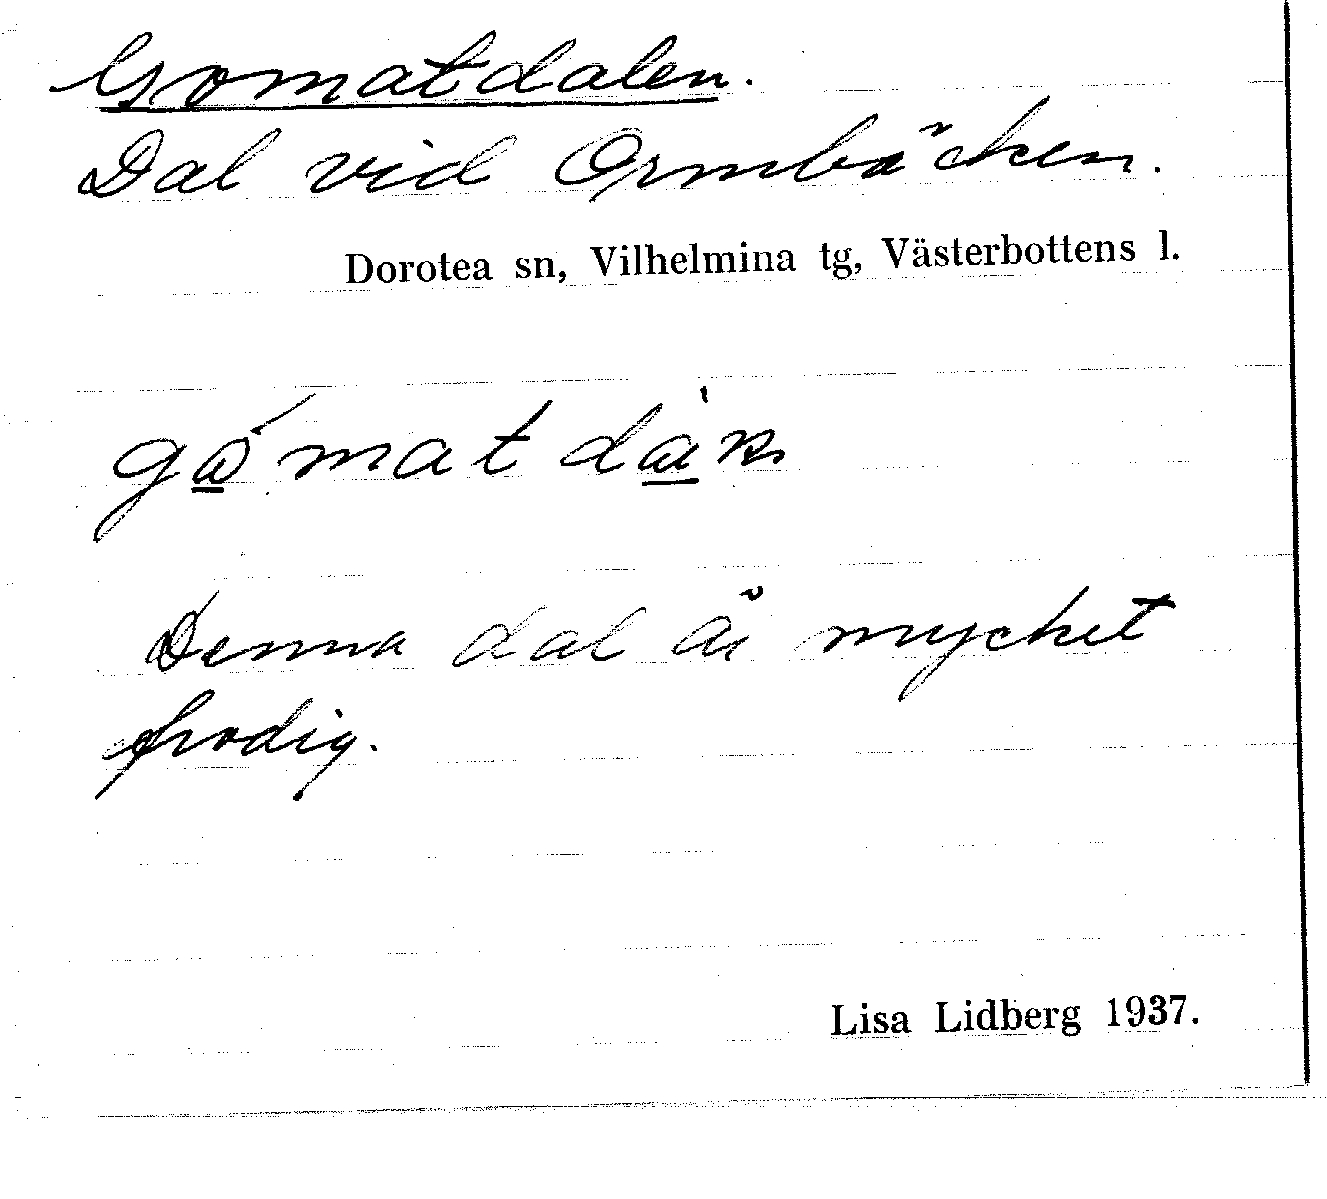 Gomatdalen.
Dal vid Ormbäcken.
Dorotea sn, Vilhelmina tg, Västerbottens l.
Denna dal är mycket
frodig.
Lisa Lidberg 1937.